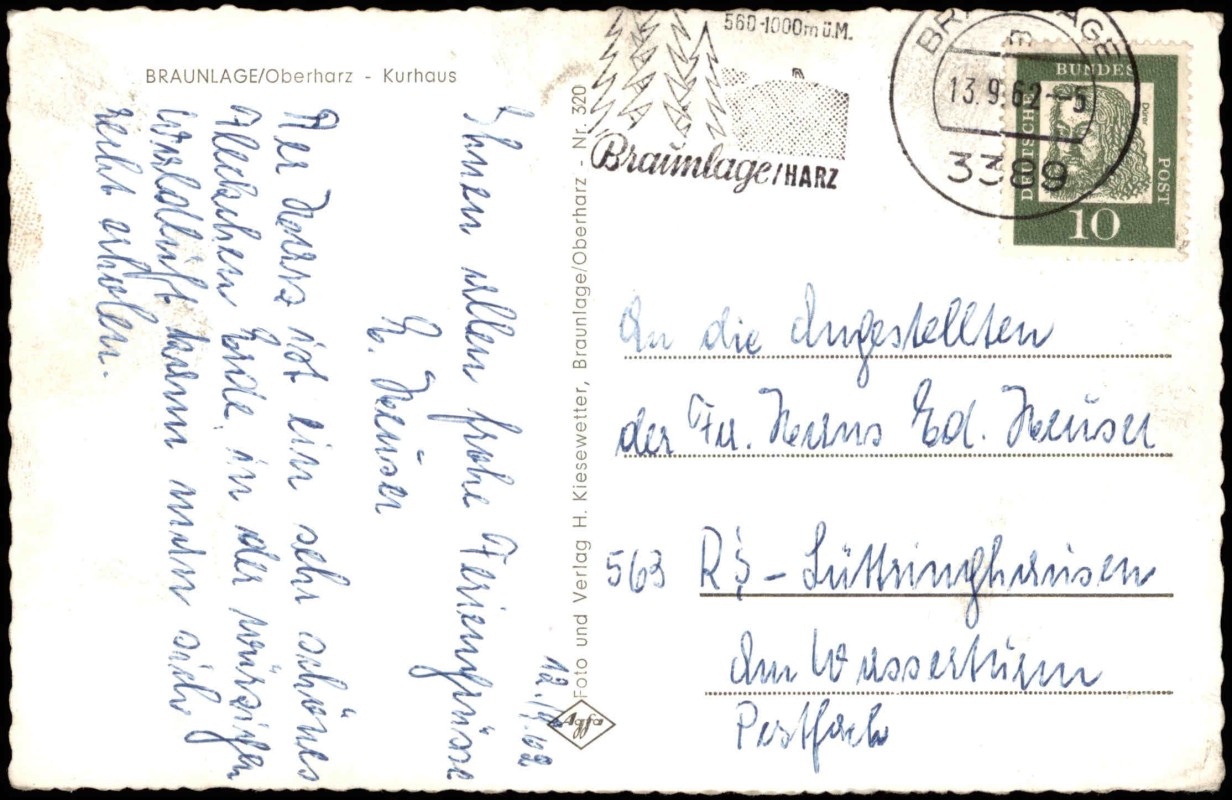 BRAUNLAGE/Oberharz - Kurhaus
12.9.62
Ihnen allen frohe Feriengrüsse
E. Heuser
Der Harz ist ein sehr schönes
Fleckchen Erde, in der würzigen
Waldluft kann man sich
recht erholen.
Foto und Verlag H. Kiesewetter, Braunlage/Oberharz - Nr. 320
Agfa
560-1000m ü.M.
Braunlage/HARZ
BRAUNLAGE
m
13.9.62--5
3389
DEUTSCHE BUNDESPOST
Dürer
10
An die Angestellten
der Fa. Hans Ed. Heuser
563 RS-Lüttringhausen
Am Wasserturm
Postfach